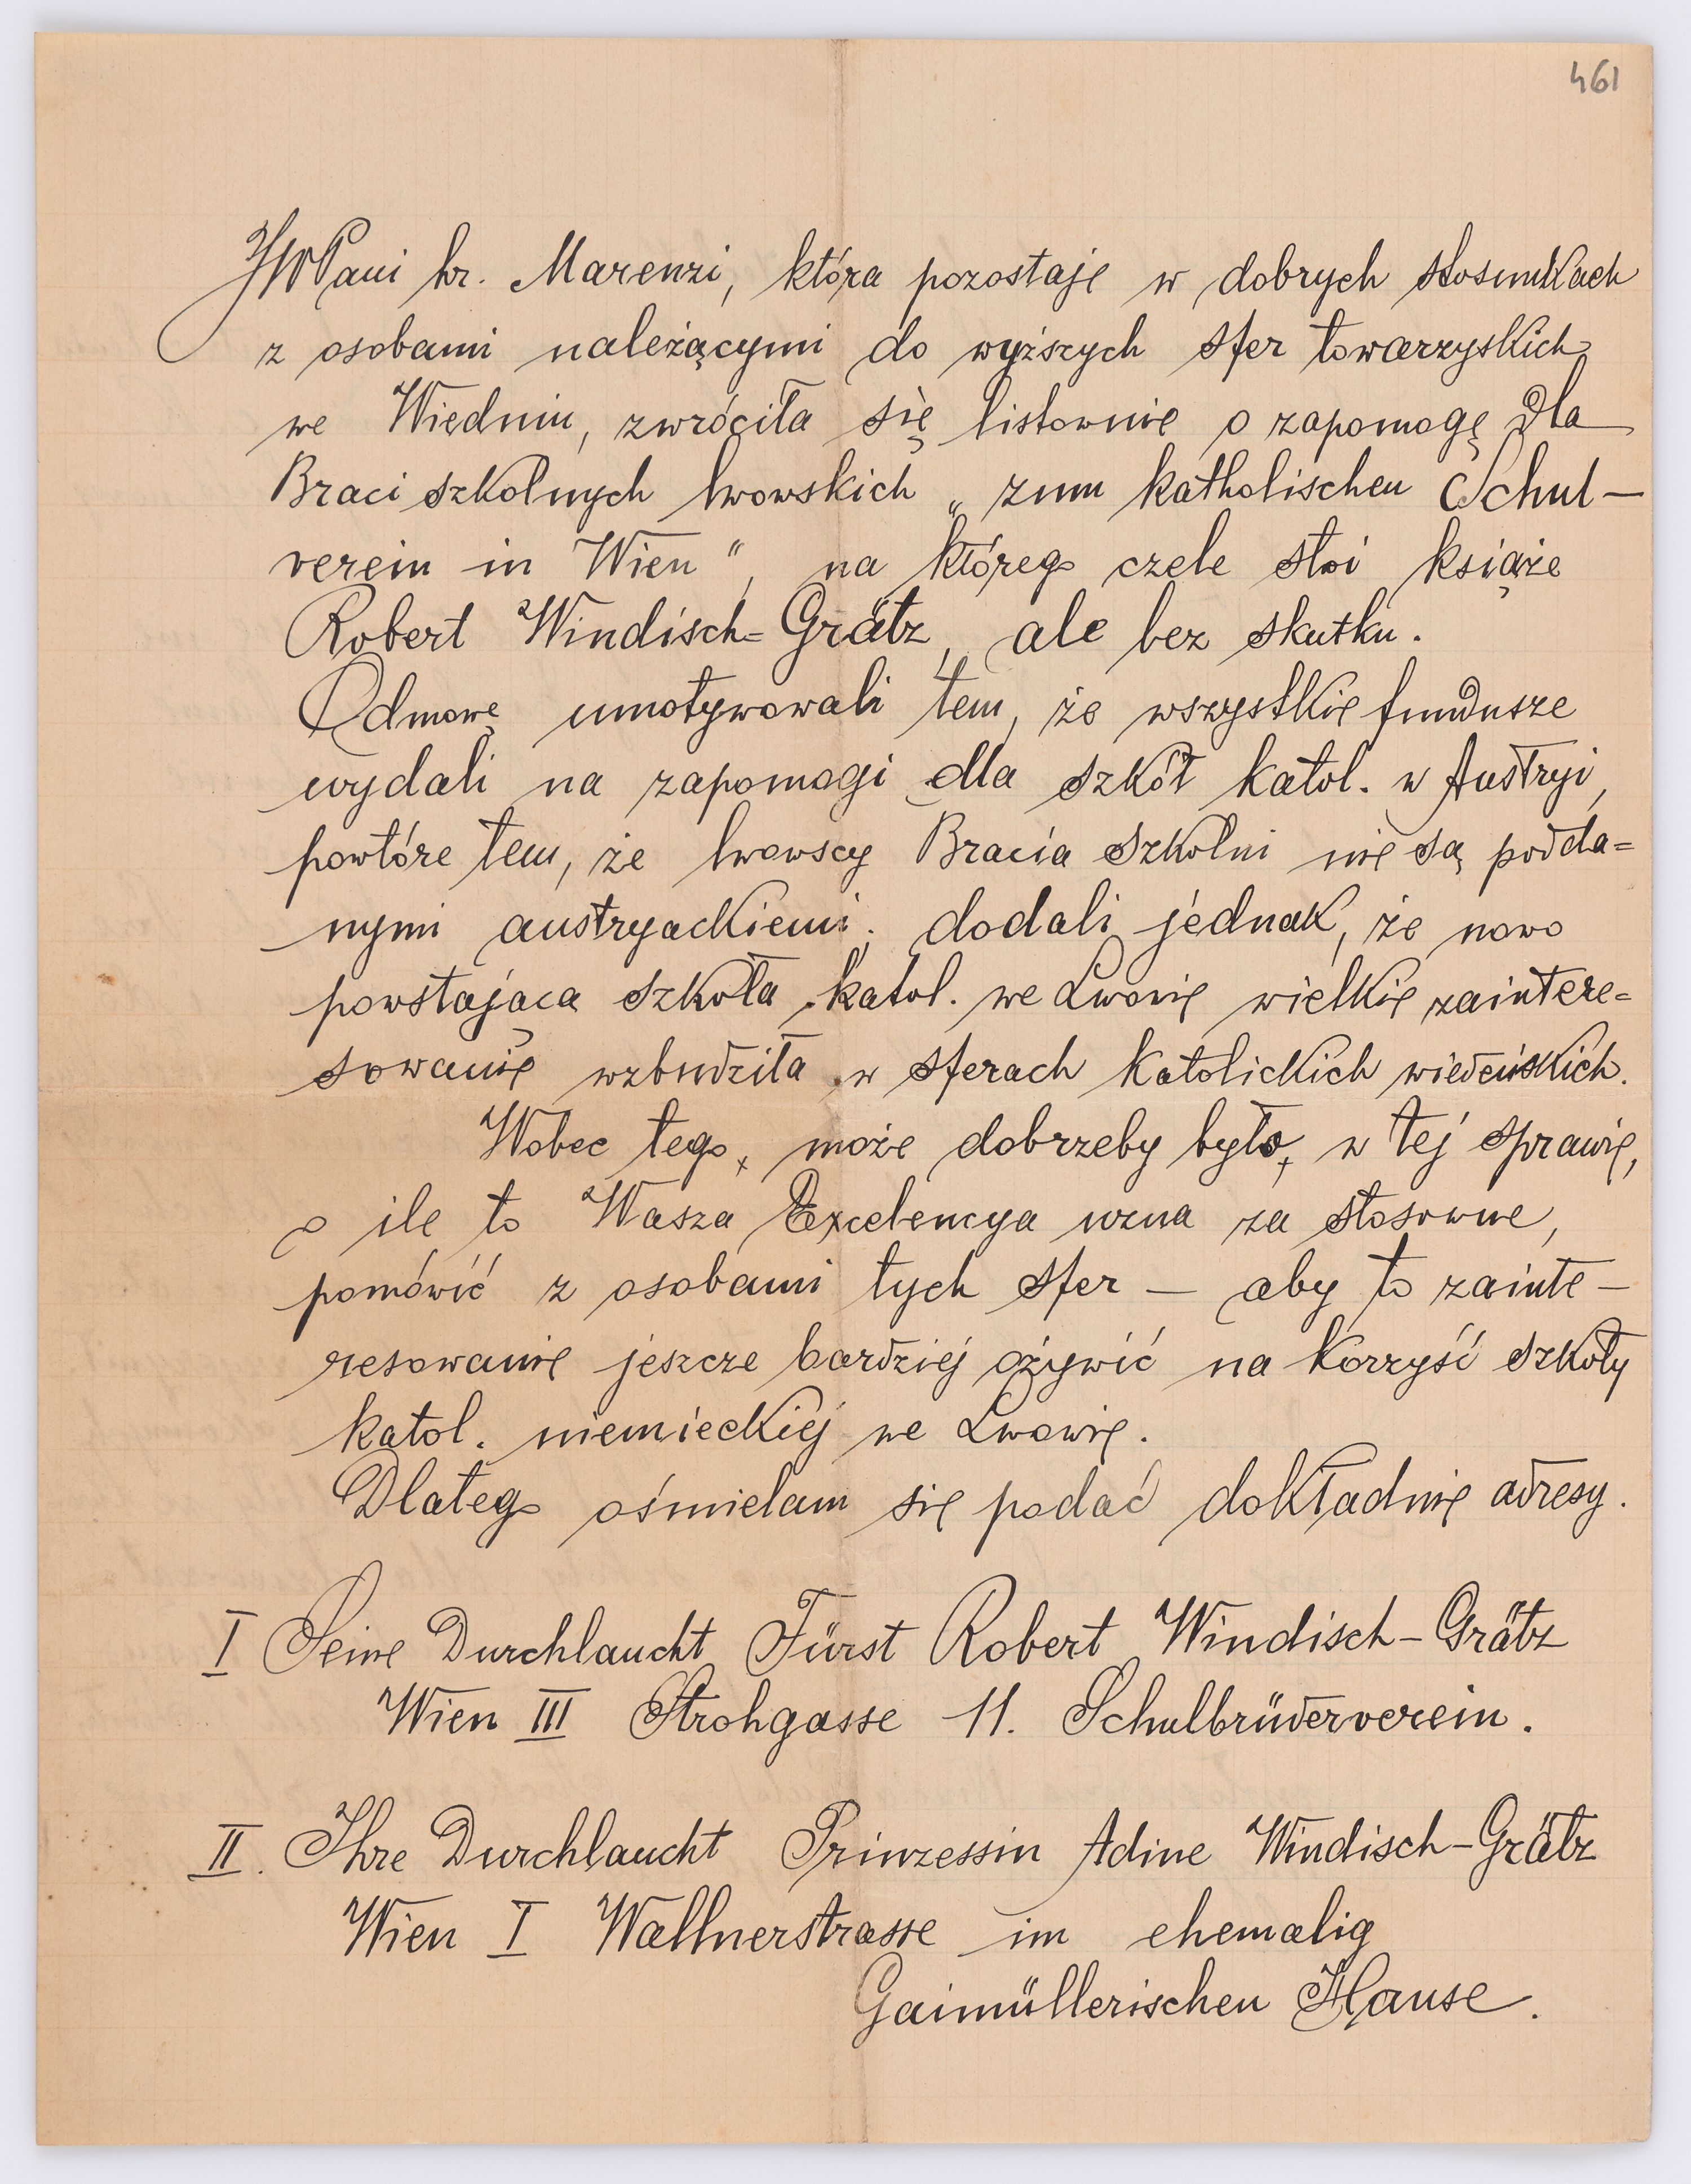 461
JWPani hr. Marenzi, która pozostaje w dobrych stosunkach
z osobami należącymi do wyższych sfer towarzyskich
we Wiedniu, zwróciła się listownie o zapomogę dla
Braci szkolnych lwowskich „zum katholischen Schul-
verein in Wien“, na którego czele stoi książe
Robert Windisch=Grätz, ale bez skutku.
Odmowę umotywowali tem, że wszystkie fundusze
wydali na zapomogi dla szkół katol. w Austryi,
powtóre tem, że lwowscy Bracia szkolni nie są podda=
nymi austryackiemi; dodali jednak, że nowo
powstająca szkoła katol. we Lwowie wielkie zaintere=
sowanie wzbudziła w sferach katolickich wiedeńskich.
Wobec tego, może dobrzeby było, w tej sprawie,
o ile to Wasza Excelencya uzna za stosowne,
pomówić z osobami tych sfer – aby to zainte-
resowanie jeszcze bardziej ożywić na korzyść szkoły
katol. niemieckiej we Lwowie.
Dlatego ośmielam się podać dokładnie adresy.
I Seine Durchlaucht Fürst Robert Windisch-Grätz
Wien III Strohgasse 11. Schulbrüderverein.
II. Ihre Durchlaucht Prinzessin Adine Windisch-Grätz
Wien I Wallnerstrasse im ehemalig
Gaimüllerischen Hause.